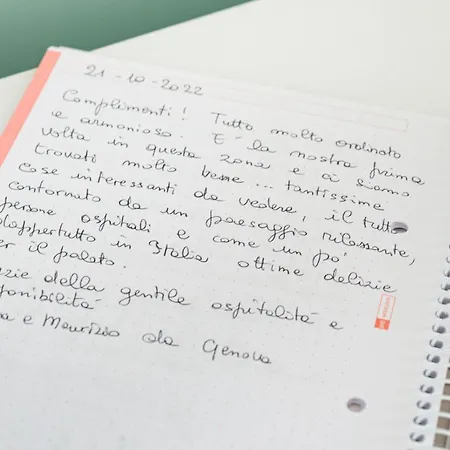 21-10-2022
Complimenti! Tutto molto ordinato
e armonioso. E' la nostra prima
volta in questa zona e ci siamo
trovati molto bene... tantissime
cose interessanti da vedere, il tutto
contornato da un paesaggio rilassante,
persone ospitali e come un po'
dappertutto in Italia ottime delizie
per il palato.
della gentile ospitalità e
e Maurizio da Genova